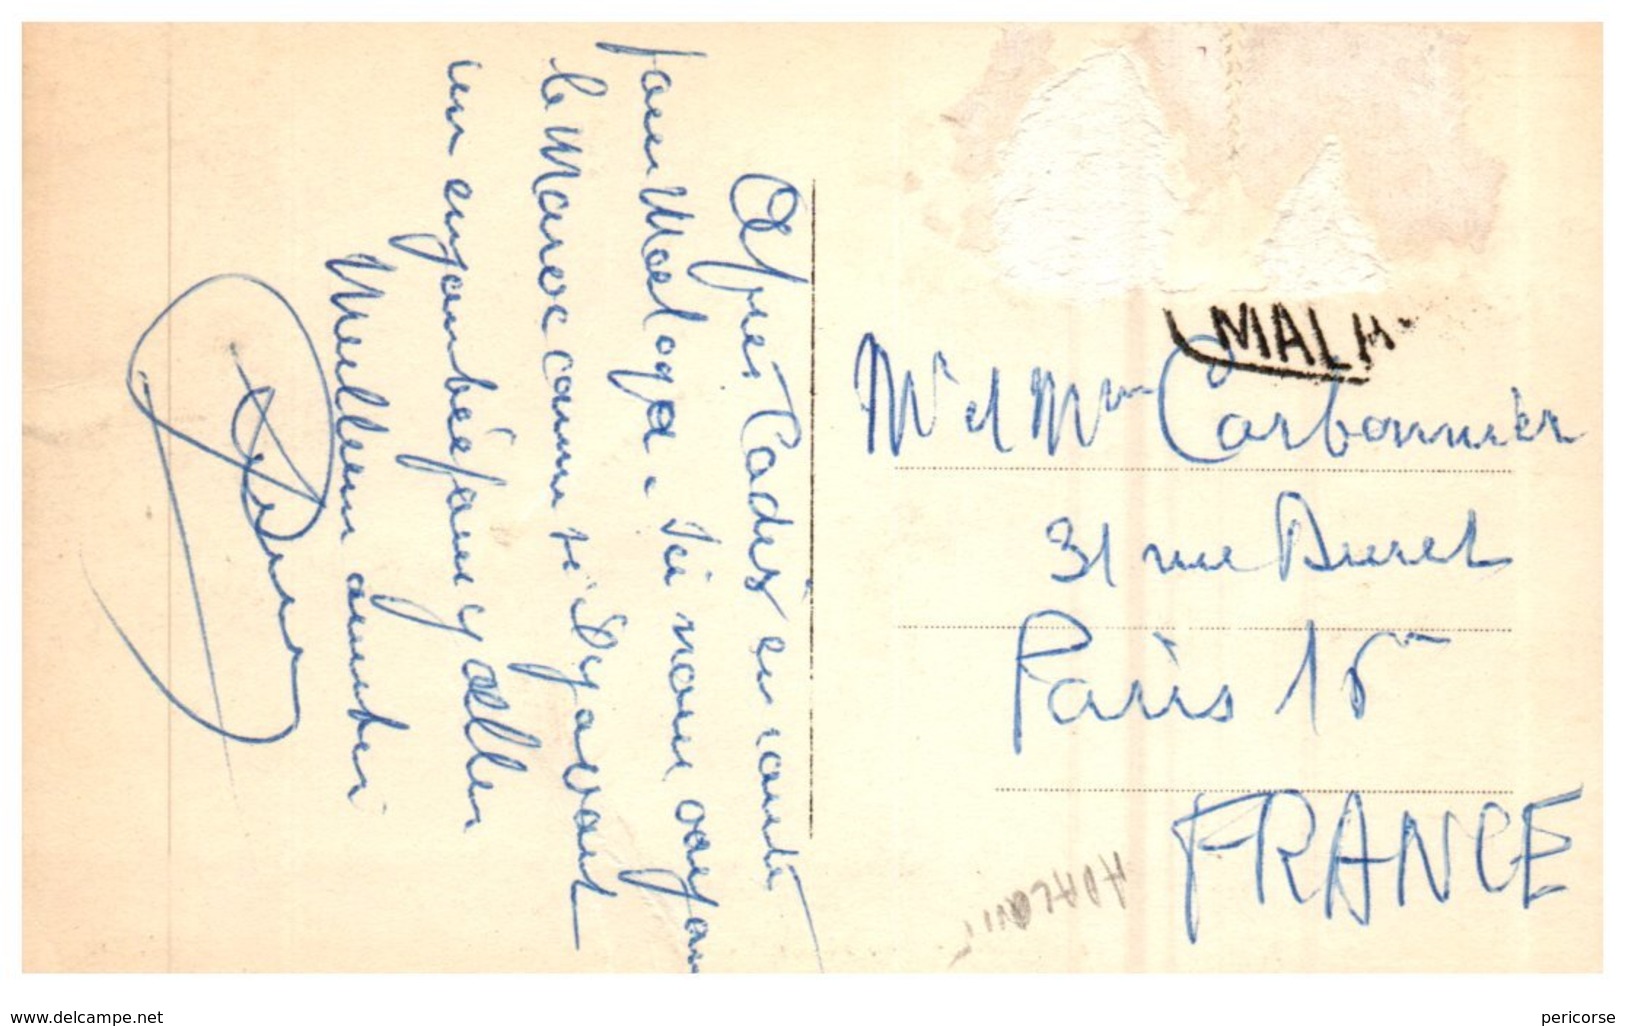 Après Cadix en route
pour Malaga. Ici nous voyons
le Maroc comme s'il y avait
un enjambée pour y aller
Meilleures amitiés
MALA
Mr et Mme Carbonnier
31 rue Duret
Paris 16me
FRANCE
www.delcampe.net
pericorse